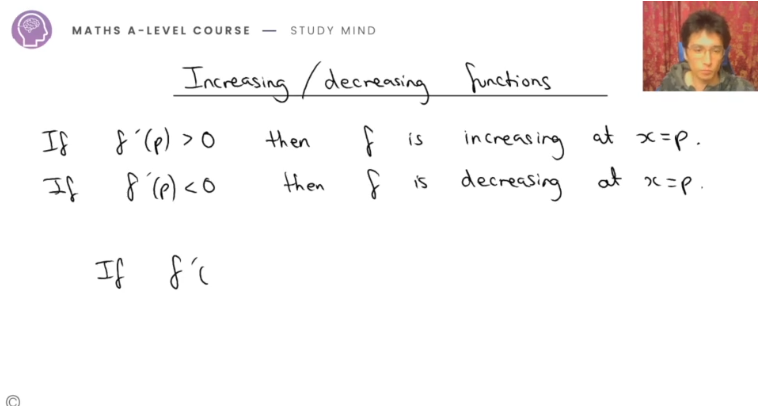 MATHS A-LEVEL COURSE — STUDY MIND
Increasing / decreasing functions
If f′(p) > 0 then f is increasing at x=p.
If f′(p) < 0 then f is decreasing at x=p.
If f′(
©